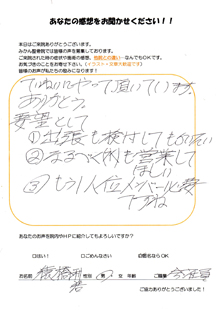 あなたの感想をお聞かせください！！
本日はご来院ありがとうございます。
みかん整骨院では皆様の声を募集しております。
ご来院された時の症状や施術の感想、他院との違い…なんでもOKです。
お礼がわりのことをお寄せ下さい。（イラスト・文章大歓迎です）
皆様のお声が私たちの励みになります！
ていねいにやって頂いています。
ありがとう。
要望として
①出張も検討してもらいたい
②なるべく休も営業して
ほしい
③もう1人位メンバー必要
ですね
あなたのお声を院内やHPに紹介してもよろしいですか？
□はい！ □ごめんなさい □匿名ならOK
お名前 性別 男 女 年齢 ご職業
ご協力ありがとうございました！